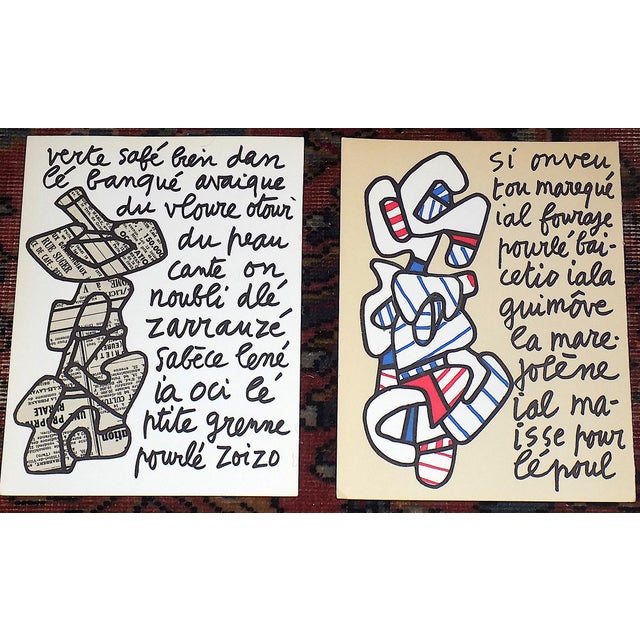 verte safé bien dan
lé banqué avaique
du vloure otour
du peau
cante on
noubli dlé
zarrauzé
sabèce lené
ia oci lé
ptite grenne
pourlé zoizo
si onveu
tou marequé
ial fourage
pourlé bai-
cetio iala
guimôve
la mare-
jolène
ial ma-
isse pour
lé poul